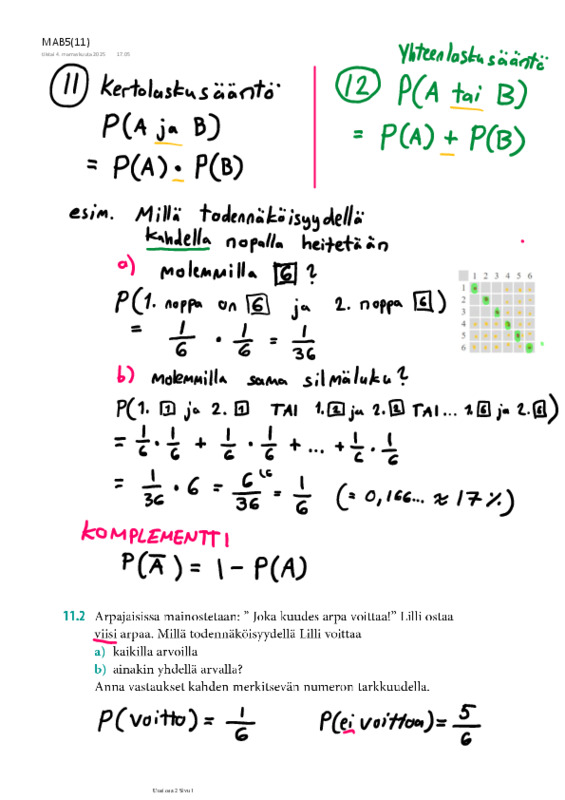 MAB5(11)
17.05
11 Kertolaskusääntö
P(A ja B)
= P(A) · P(B)
Yhteenlaskusääntö
12 P(A tai B)
= P(A) + P(B)
esim. Millä todennäköisyydellä
kahdella nopalla heitetään
a) molemmilla 6 ?
P(1. noppa on 6 ja 2. noppa 6)
= 1/6 · 1/6 = 1/36
1 2 3 4 5 6
1
2
3
4
5
6
b) molemmilla sama silmäluku?
P(1. 1 ja 2. 1 TAI 1. 2 ja 2. 2 TAI... 1. 6 ja 2. 6)
= 1/6 · 1/6 + 1/6 · 1/6 + ... + 1/6 · 1/6
= 1/36 · 6 = 6/36 = 1/6 (= 0,166... ≈ 17 %)
KOMPLEMENTTI
P(A̅) = 1 - P(A)
11.2 Arpajaisissa mainostetaan: ” Joka kuudes arpa voittaa!” Lilli ostaa
viisi arpaa. Millä todennäköisyydellä Lilli voittaa
a) kaikilla arvoilla
b) ainakin yhdellä arvalla?
Anna vastaukset kahden merkitsevän numeron tarkkuudella.
P(voitto) = 1/6 P(ei voittoa) = 5/6